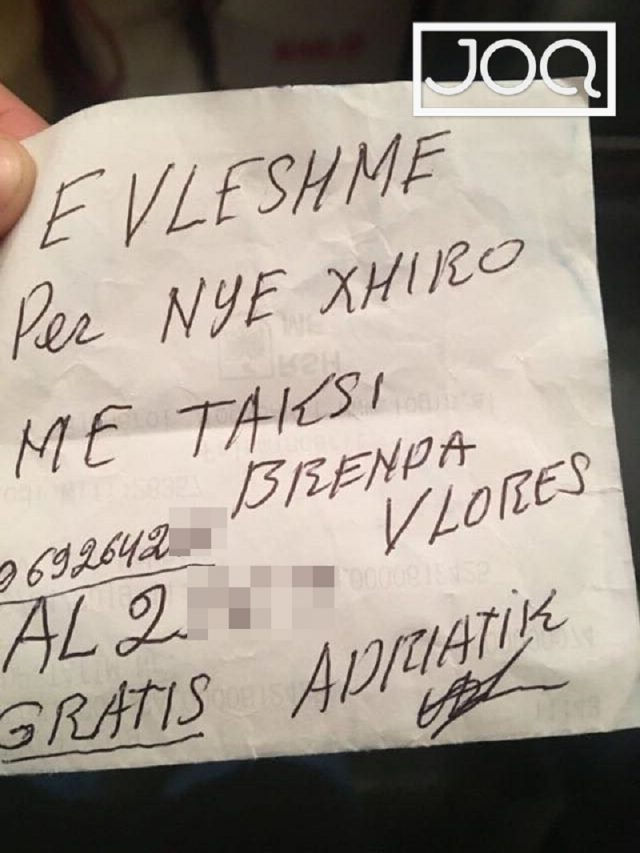 JOQ
E VLESHME
Per NYE XHIRO
ME TAKSI
BRENDA
VLORES
0692642
AL2
GRATIS
ADRIATIK